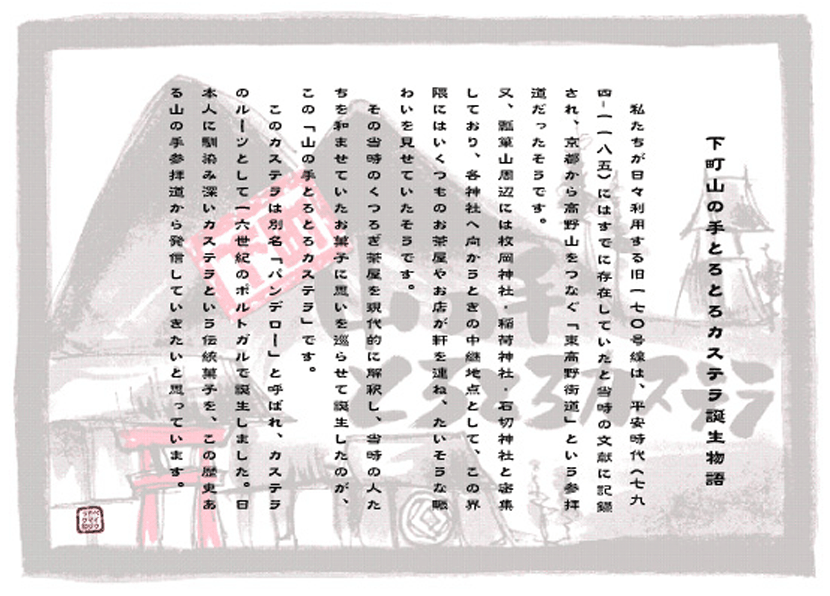 下町山の手とろとろカステラ誕生物語
私たちが日々利用する旧一七〇号線は、平安時代(七九
四-一一八五)にはすでに存在していたと当時の文献に記録
され、京都から高野山をつなぐ「東高野街道」という参拝
道だったそうです。
又、瓢箪山周辺には枚岡神社・稲荷神社・石切神社と密集
しており、各神社へ向かうときの中継地点として、この界
隈にはいくつものお茶屋やお店が軒を連ね、たいそうな賑
わいを見せていたそうです。
その当時のくつろぎ茶屋を現代的に解釈し、当時の人た
ちを和ませていたお菓子に思いを巡らせて誕生したのが、
この「山の手とろとろカステラ」です。
このカステラは別名「パンデロー」と呼ばれ、カステラ
のルーツとして一六世紀のポルトガルで誕生しました。日
本人に馴染み深いカステラという伝統菓子を、この歴史あ
る山の手参拝道から発信していきたいと思っています。
山の手
とろとろカステラ